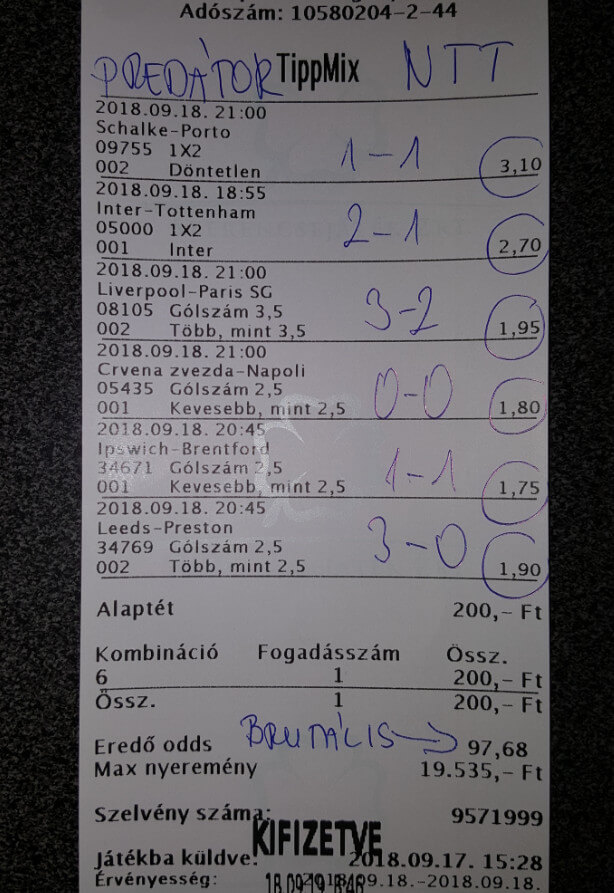 Adószám: 10580204-2-44
PREDÁTOR TippMix NTT
2018.09.18. 21:00
Schalke-Porto
09755 1X2 1-1
002 Döntetlen 3,10
2018.09.18. 18:55
Inter-Tottenham
05000 1X2 2-1
001 Inter 2,70
2018.09.18. 21:00
Liverpool-Paris SG
08105 Gólszám 3,5 3-2
002 Több, mint 3,5 1,95
2018.09.18. 21:00
Crvena zvezda-Napoli
05435 Gólszám 2,5 0-0
001 Kevesebb, mint 2,5 1,80
2018.09.18. 20:45
Ipswich-Brentford
34671 Gólszám 2,5 1-1
001 Kevesebb, mint 2,5 1,75
2018.09.18. 20:45
Leeds-Preston
34769 Gólszám 2,5 3-0
002 Több, mint 2,5 1,90
Alaptét 200,- Ft
Kombináció Fogadásszám Össz.
6 1 200,- Ft
Össz. 1 200,- Ft
Eredő odds BRUTÁLIS → 97,68
Max nyeremény 19.535,- Ft
Szelvény száma: 9571999
KIFIZETVE
Játékba küldve: 2018.09.17. 15:28
Érvényesség: 2018.09.18.-2018.09.18.